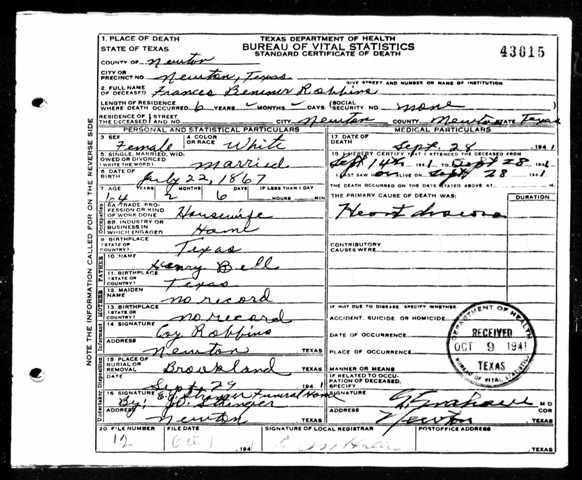 TEXAS DEPARTMENT OF HEALTH
BUREAU OF VITAL STATISTICS
STANDARD CERTIFICATE OF DEATH
43015
1. PLACE OF DEATH
STATE OF TEXAS
COUNTY OF Newton
CITY OR PRECINCT NO. Newton, Texas
GIVE STREET AND NUMBER OR NAME OF INSTITUTION
2. FULL NAME OF DECEASED Frances Robbins
LENGTH OF RESIDENCE WHERE DEATH OCCURRED 6 YEARS - MONTHS - DAYS (SOCIAL SECURITY NO. none
RESIDENCE OF THE DECEASED STREET AND NO. CITY Newton COUNTY Newton STATE Texas
PERSONAL AND STATISTICAL PARTICULARS
3. SEX Female
4. COLOR OR RACE White
5. SINGLE, MARRIED, WIDOWED OR DIVORCED (WRITE THE WORD) married
6. DATE OF BIRTH July 22, 1867
7. AGE YEARS MONTHS DAYS IF LESS THAN 1 DAY
2 6 HOURS MIN.
8A. TRADE, PROFESSION OR KIND OF WORK DONE Housewife
8B. INDUSTRY OR BUSINESS IN WHICH ENGAGED Home
9. BIRTHPLACE (STATE OR COUNTRY) Texas
10. NAME Henry Bell
11. BIRTHPLACE (STATE OR COUNTRY) Texas
12. MAIDEN NAME no record
13. BIRTHPLACE (STATE OR COUNTRY) no record
14. SIGNATURE Coy Robbins
ADDRESS Newton TEXAS
15. PLACE OF BURIAL OR REMOVAL Brookland TEXAS
DATE Sept. 29 1941
16. SIGNATURE Funeral Home
By:
ADDRESS Newton TEXAS
MEDICAL PARTICULARS
17. DATE OF DEATH Sept. 28 1941
18. I HEREBY CERTIFY THAT I ATTENDED THE DECEASED FROM
Sept 14th 1941 TO Sept 28 1941
I LAST SAW ALIVE ON Sept 28 1941
THE DEATH OCCURRED ON THE DATE STATED ABOVE AT M.
THE PRIMARY CAUSE OF DEATH WAS: DURATION
Heart
CONTRIBUTORY CAUSES WERE:
IF NOT DUE TO DISEASE SPECIFY WHETHER:
ACCIDENT, SUICIDE OR HOMICIDE
DATE OF OCCURRENCE
PLACE OF OCCURRENCE
MANNER OR MEANS
IF RELATED TO OCCUPATION OF DECEASED, SPECIFY
M D
Newton TEXAS
DEPARTMENT OF HEALTH
RECEIVED
OCT 9 1941
TEXAS
BUREAU OF VITAL STATISTICS
20 FILE NUMBER FILE DATE SIGNATURE OF LOCAL REGISTRAR POSTOFFICE ADDRESS
12 Oct 1 194 TEXAS
NOTE THE INFORMATION CALLED FOR ON THE REVERSE SIDE